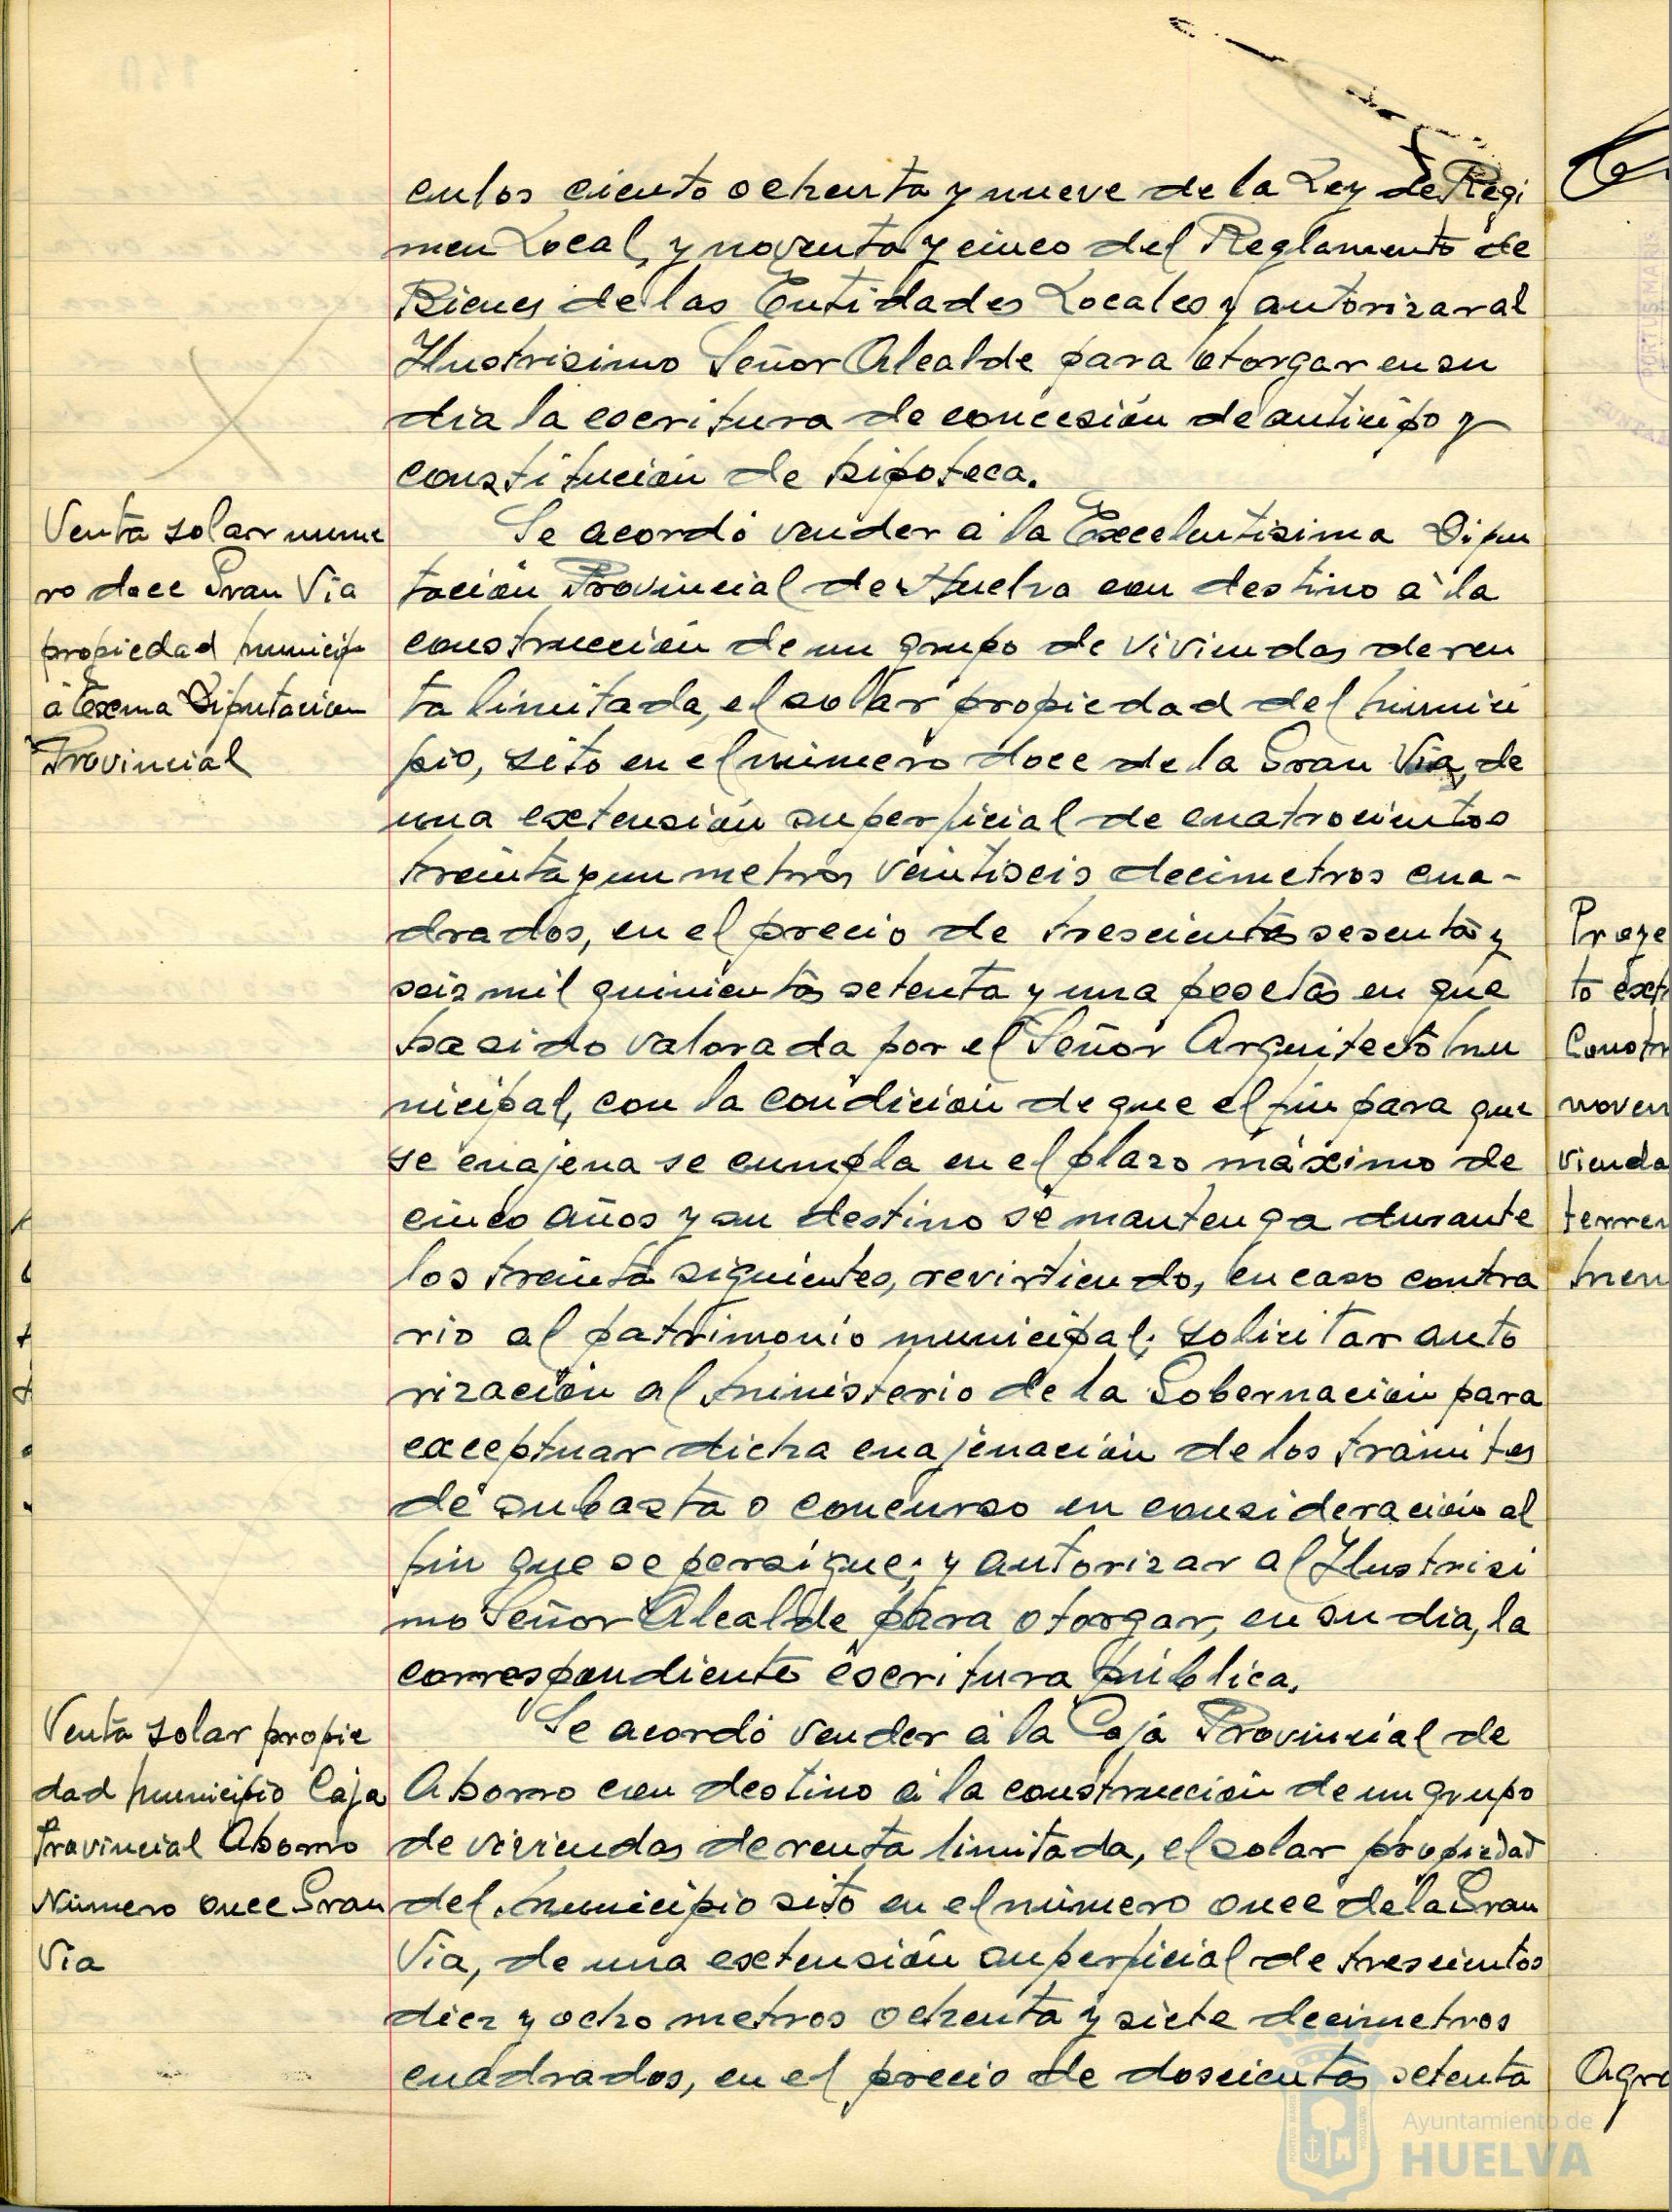 culos ciento ochenta y nueve de la Ley de Regi
men Local, y noventa y cinco del Reglamento de
Bienes de las Entidades Locales y autorizar al
Ilustrisimo Señor Alcalde para otorgar en su
dia la escritura de concesión de anticipo y
constitución de hipoteca.
Venta solar nume
ro doce Gran Via
propiedad municip
á Excma Diputacion
Provincial
Se acordó vender á la Excelentisima Dipu
tación Provincial de Huelva con destino á la
construcción de un grupo de viviendas de ren
ta limitada, el solar propiedad del munici
pio, sito en el número doce de la Gran Via, de
una extensión superficial de cuatrocientos
treinta y un metros veintiseis decimetros cua-
drados, en el precio de trescientas sesenta y
seis mil quinientas setenta y una pesetas en que
ha sido valorada por el Señor Arquitecto Mu
nicipal, con la condición de que el fin para que
se enajena se cumpla en el plazo máximo de
cinco años y su destino se mantenga durante
los treinta siguientes, revirtiendo, en caso contra
rio al patrimonio municipal; solicitar auto
rización al Ministerio de la Gobernación para
exceptuar dicha enajenación de los trámites
de subasta o concurso en consideración al
fin que se persigue; y autorizar al Ilustrisi
mo Señor Alcalde para otorgar, en su dia, la
correspondiente escritura pública.
Venta solar propie
dad municipio Caja
Provincial Ahorro
Número once Gran
Via
Se acordó vender á la Caja Provincial de
Ahorro con destino á la construcción de un grupo
de viviendas de renta limitada, el solar propiedad
del municipio sito en el número once de la Gran
Via, de una extensión superficial de trescientos
diez y ocho metros ochenta y siete decimetros
cuadrados, en el precio de doscientas setenta
Proye
to ext
Constr
noven
vienda
terren
men
Agra
Ayuntamiento de
HUELVA